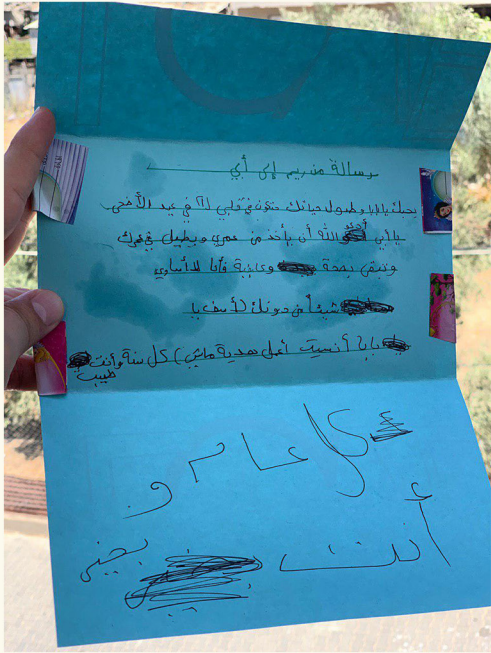 رسالة من ريم إلى أبي
بحبك يا بابا وطول حياتك حتكون في قلبي في عيد الأضحى
يا أبي الله أن يأخذ من عمري ويطيل في عمرك
وتبقى بصحة وعافية فأنا لا أساوي
شيئاً من دونك (أسف يا
بابا أنسيت أعمل هدية ماشي) كل سنة وأنت
طيب
كل عام و
أنت بخير